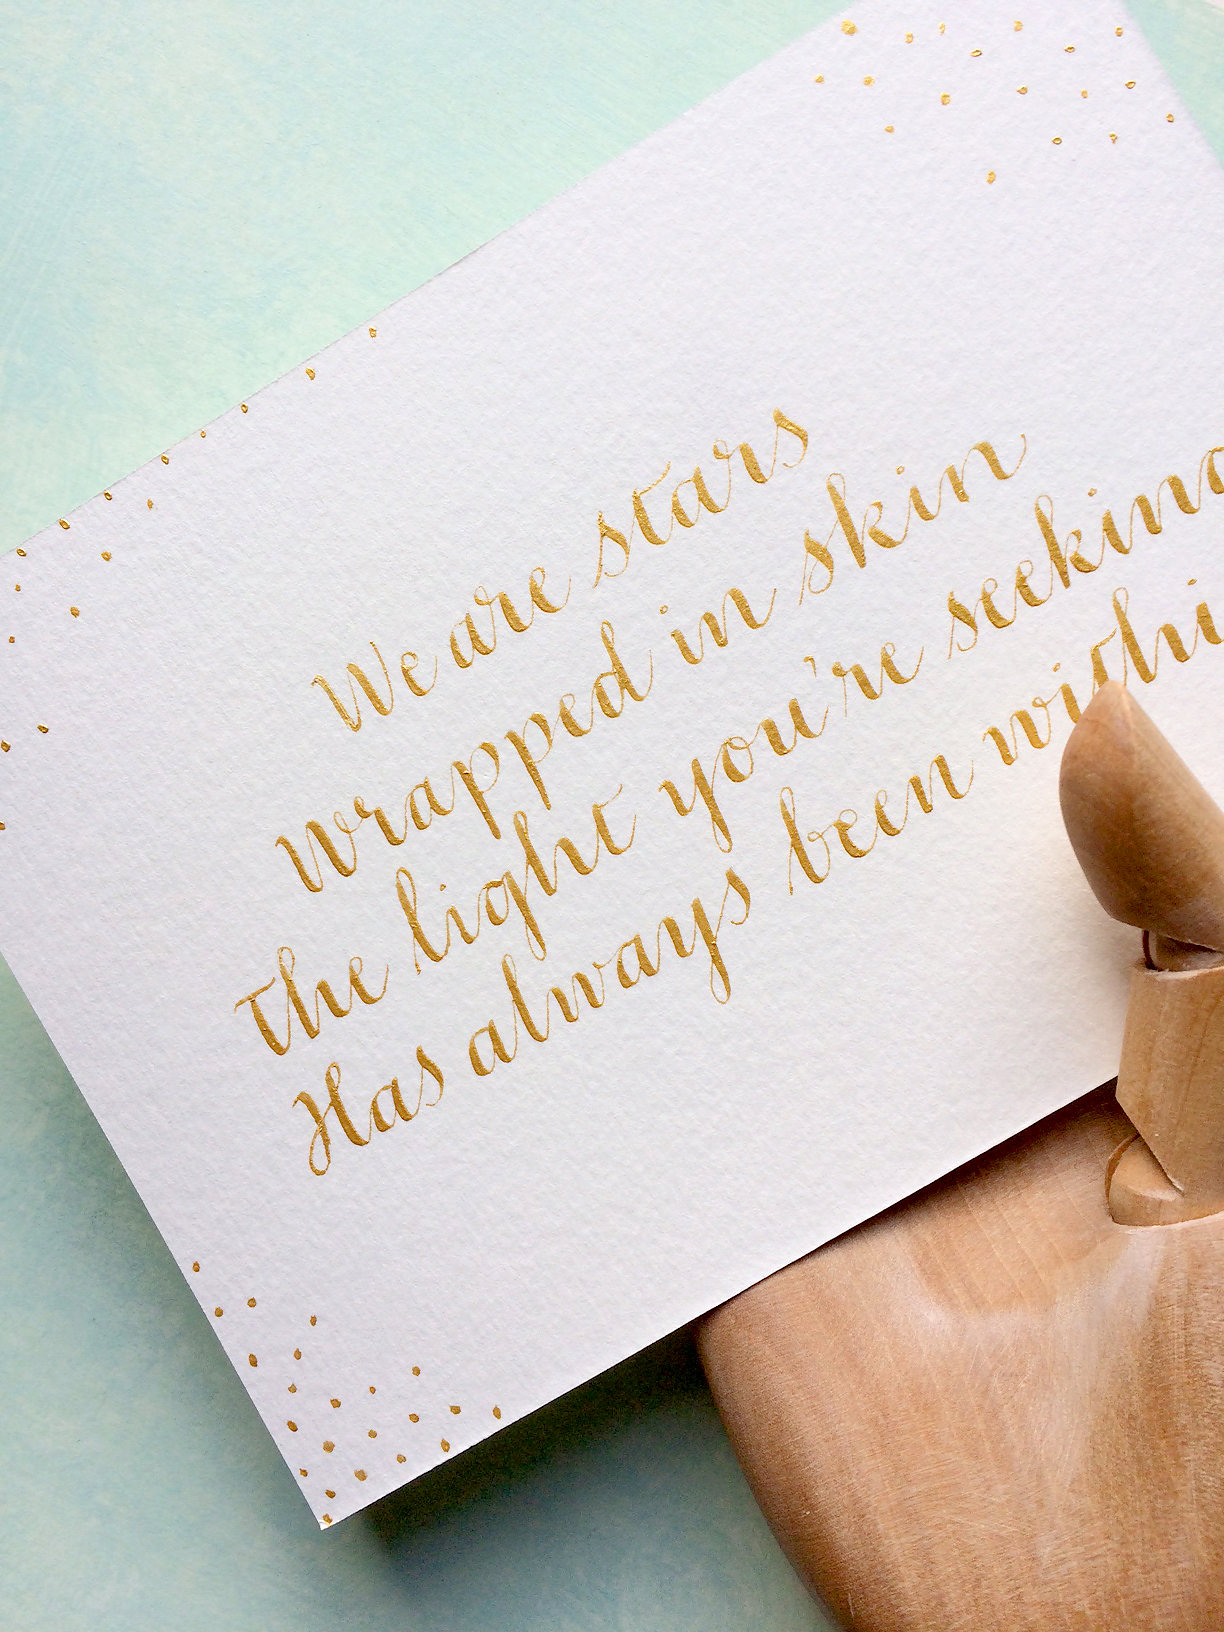 We are stars
wrapped in skin
The light you're seeking
Has always been within